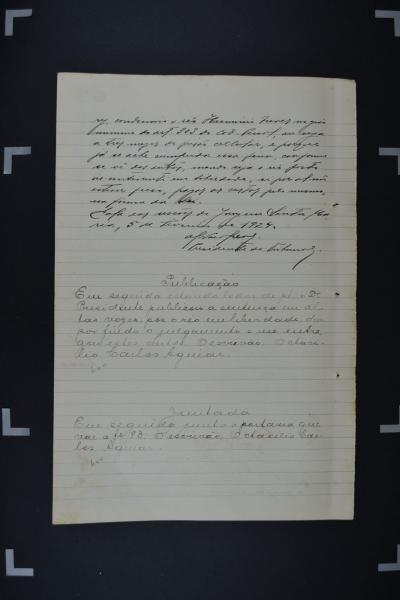 condemno o réo Herminio no gráo
minimo do art. 303 do Cod. Penal, ou seja
a tres mezes de prisão cellular, e porque
já se acha cumprida essa pena, conforme
se vê dos autos, mando seja o réo posto
em liberdade, si por al não
estiver preso, pagas as custas pelo mesmo,
na forma da lei.
Sala das sessões do Jury em Santa
5 de Fevereiro de 1929.
Presidente do Tribunal
Publicação
Em seguida estando todos de pé, o Dr.
Presidente publicou a sentença em al
tas vozes, poz o réo em liberdade, deu
por findo o julgamento e me entre
gou estes autos. O escrivão, Octaci
lio Carlos Aguiar.
Juntada
Em seguida junto a portaria que
vae a fs. 93. O escrivão, Octacilio Car
los Aguiar.